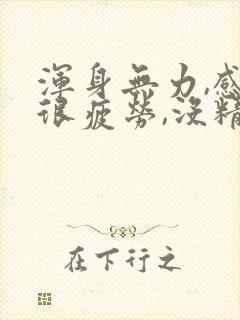 渾身無力,感
很疲勞,沒精
在下行之